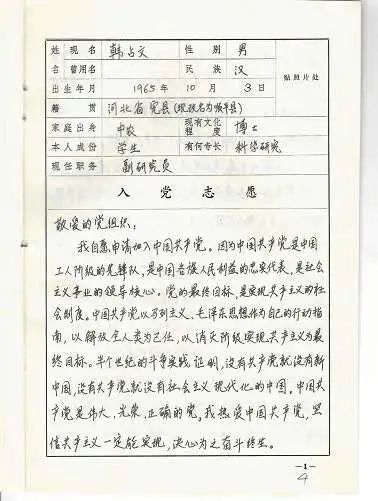 姓 现名 韩占文 性别 男
名 曾用名 民族 汉 贴照片处
出生年月 1965年10月3日
籍贯 河北省完县(现改名为顺平县)
家庭出身 中农 现有文化程度 博士
本人成份 学生 有何专长 科学研究
现任职务 副研究员
入党志愿
敬爱的党组织:
我自愿申请加入中国共产党。因为中国共产党是中国
工人阶级的先锋队,是中国各族人民利益的忠实代表,是社会
主义事业的领导核心。党的最终目标,是实现共产主义的社
会制度。中国共产党以马列主义、毛泽东思想作为自己的行动指
南,以解放全人类为己任,以消灭阶级实现共产主义为最
终目标。半个世纪的斗争实践证明,没有共产党就没有新
中国,没有共产党就没有社会主义现代化的中国。中国共
产党是伟大、光荣、正确的党。我热爱中国共产党,坚
信共产主义一定能实现,决心为之奋斗终生。
—1—
4